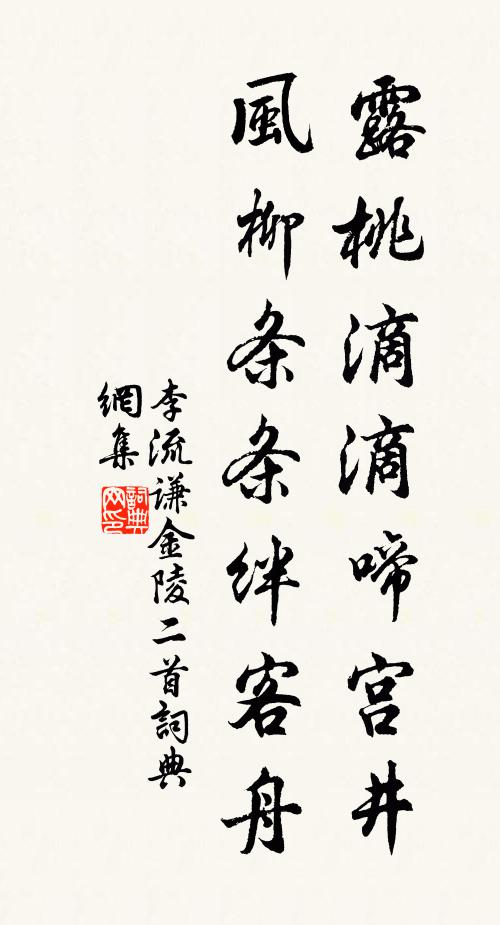 露桃滴滴啼宫井
風柳条条絆客舟
李流谦金陵二首詞典
網集
詞典
网印